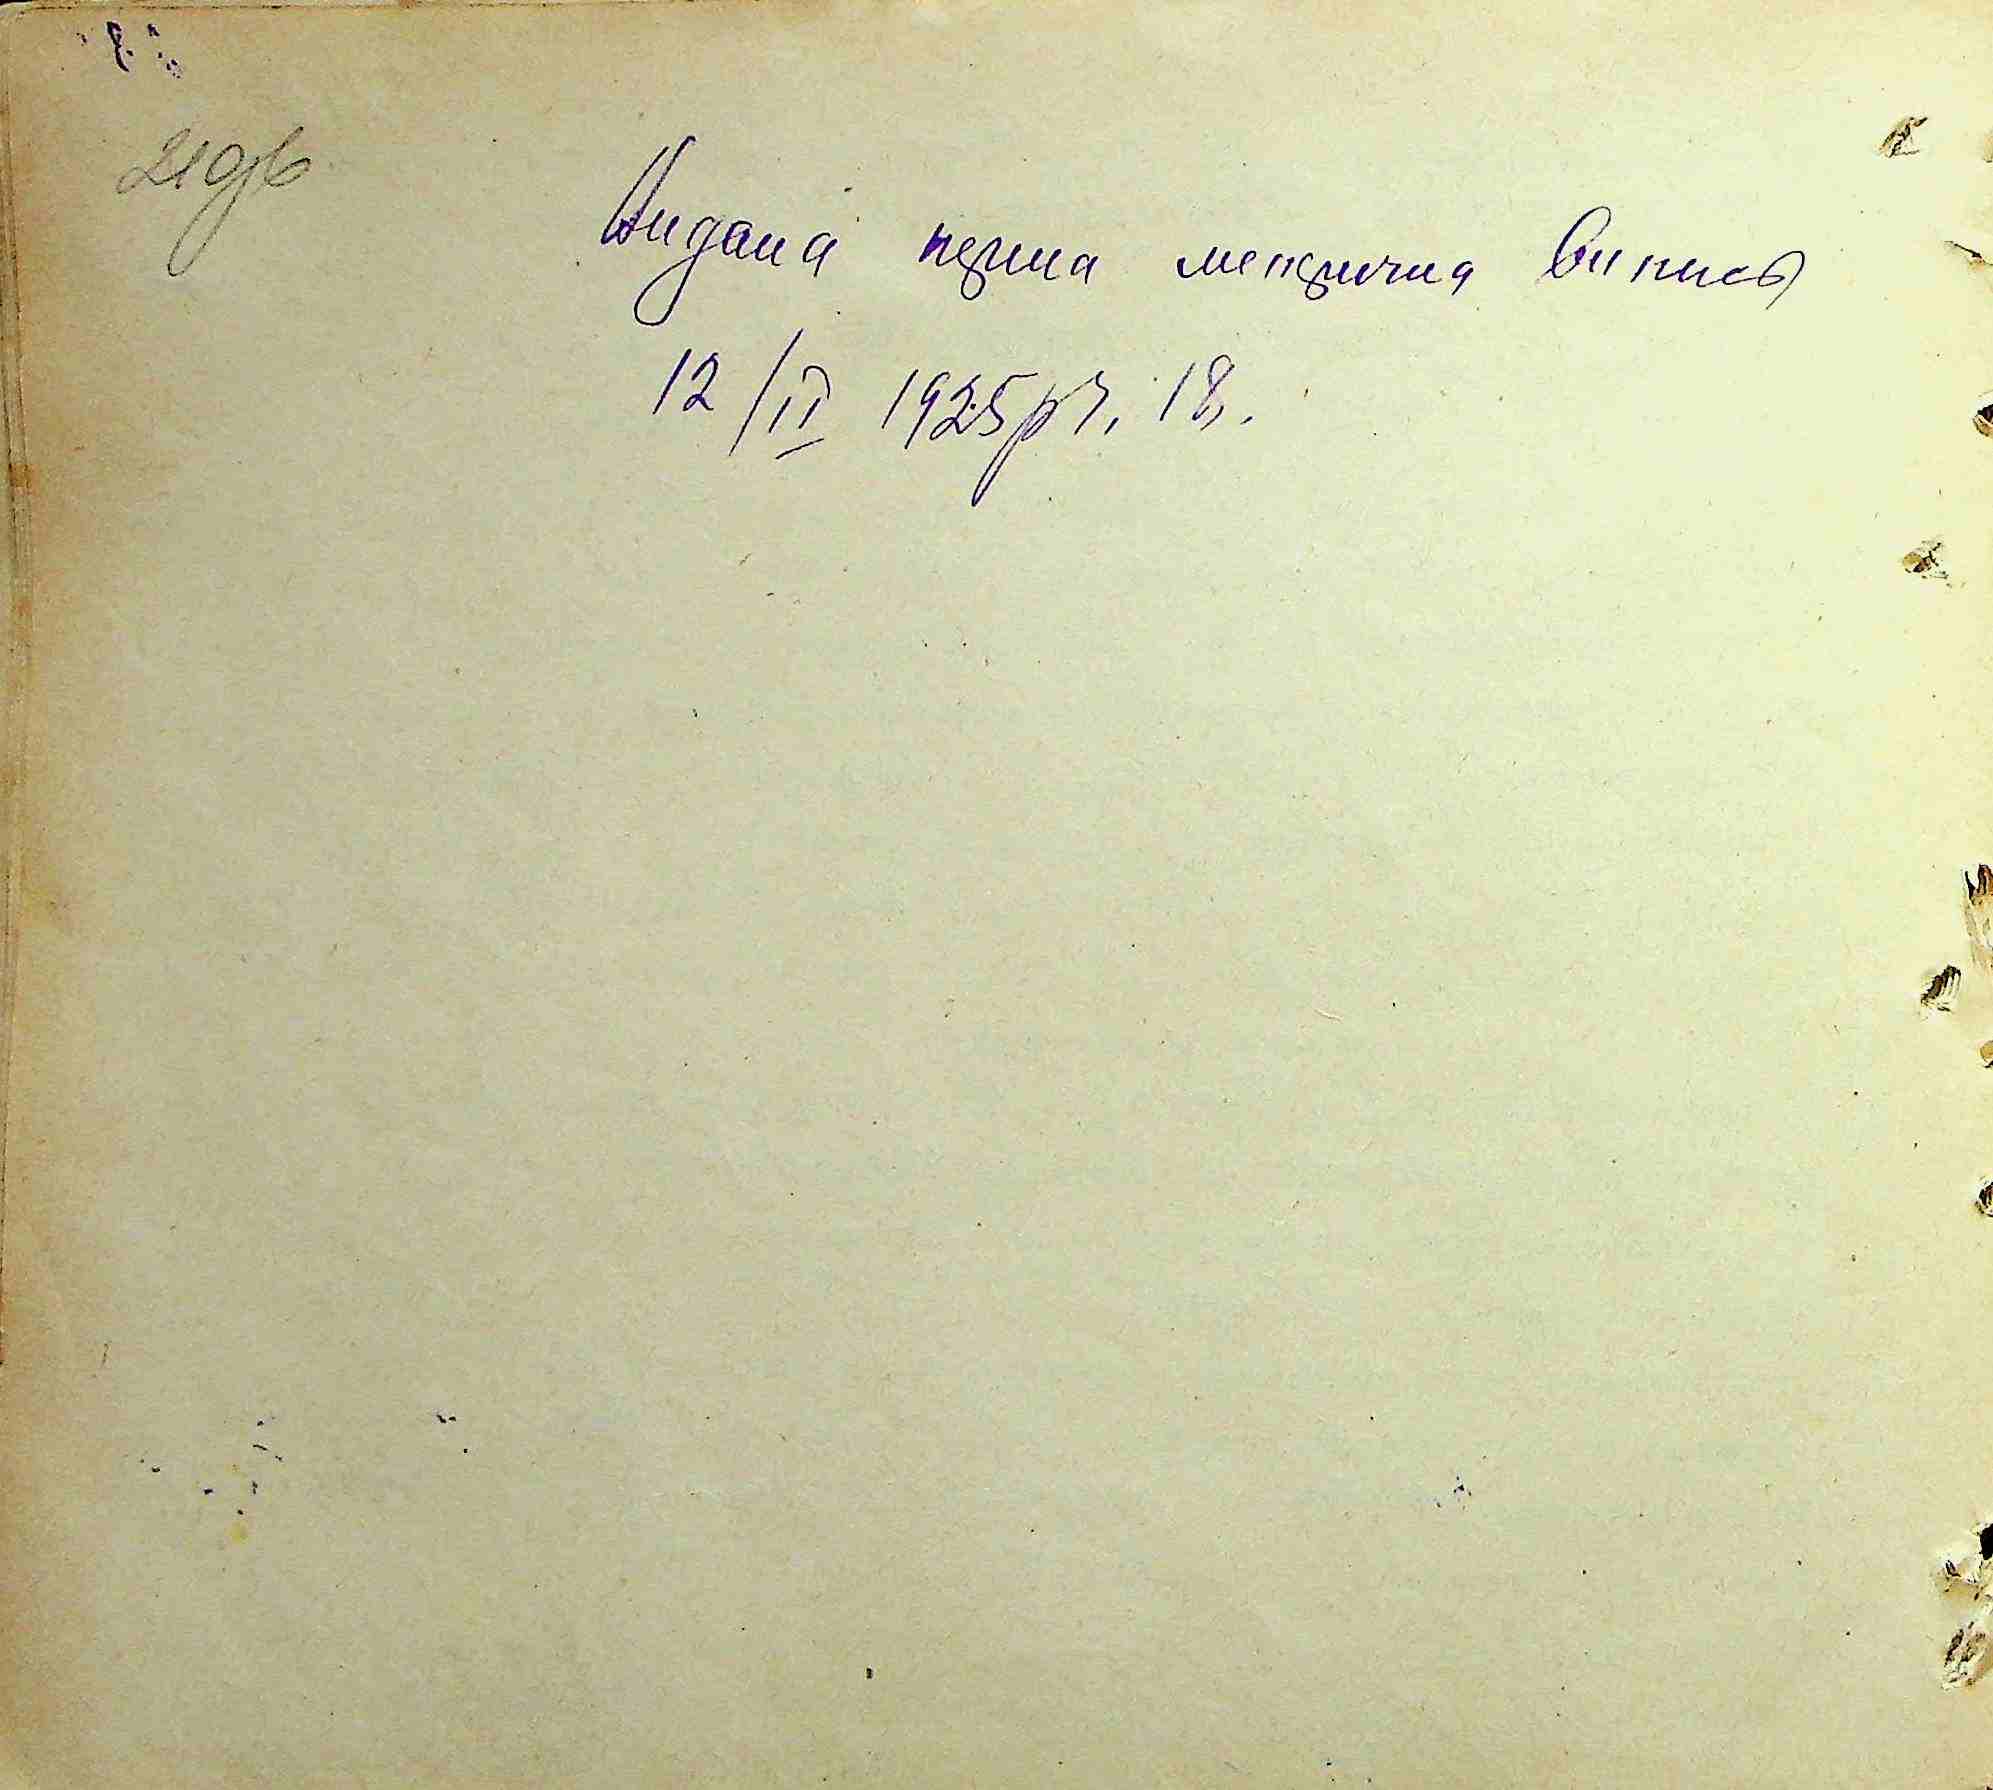 219 зв
Видана перша метрична випись
12/II 1925 р ч. 18.